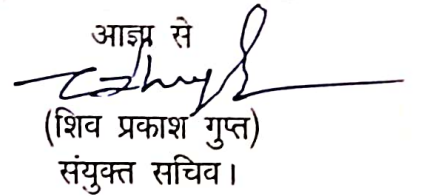 आज्ञा से
(शिव प्रकाश गुप्त)
संयुक्त सचिव।